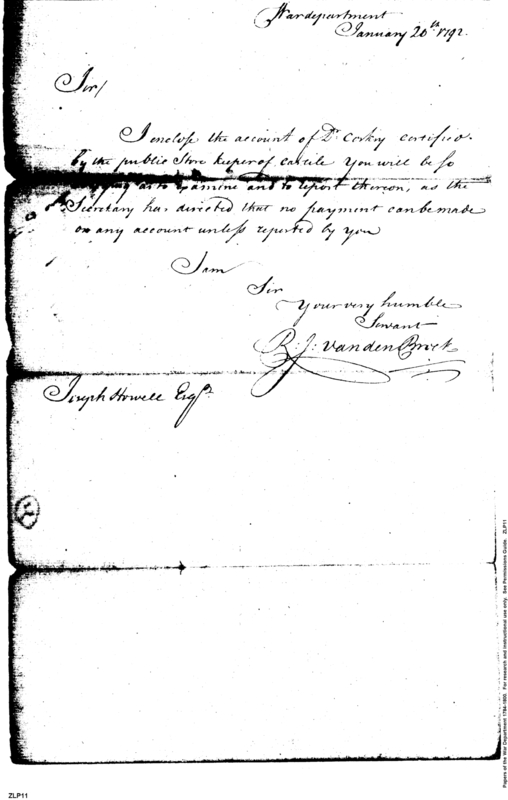 War department
January 20th 1792.
Sir/
I enclose the account of Dr. certified
by the public Store keeper of Carlile You will be so
as to examine and to report thereon, as the
Secretary has directed that no payment can be made
on any account unless reported by you
I am
Sir
Your very humble
Servant
B. J. Vanden Broek
Joseph Howell Esqr.
ZLP11
Papers of the War Department 1784-1800. For research and instructional use only. See Permissions Guide. ZLP11